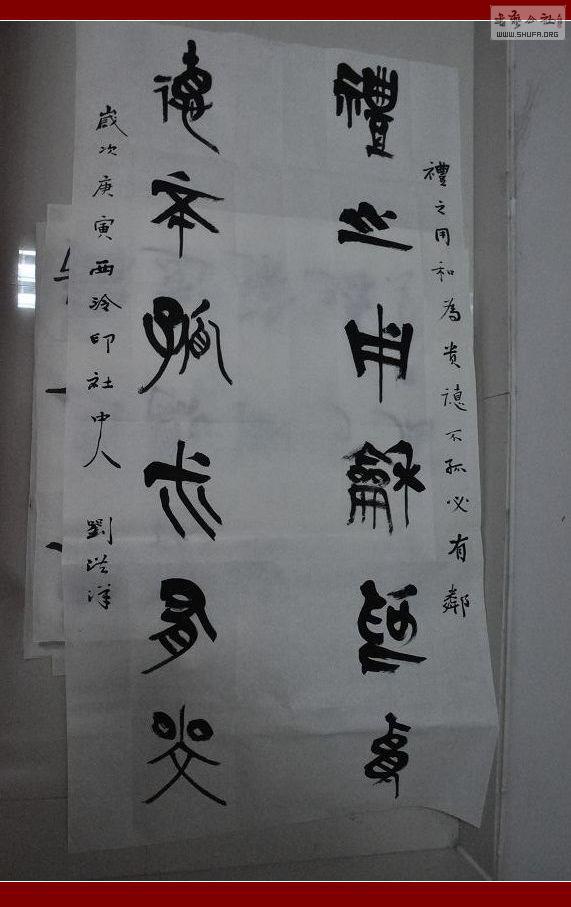 書藝公社
WWW.SHUFA.ORG
禮之用和為貴德不孤必有鄰
禮之用龢為貴
德不孤必有鄰
歲次庚寅西泠印社中人
劉洪洋